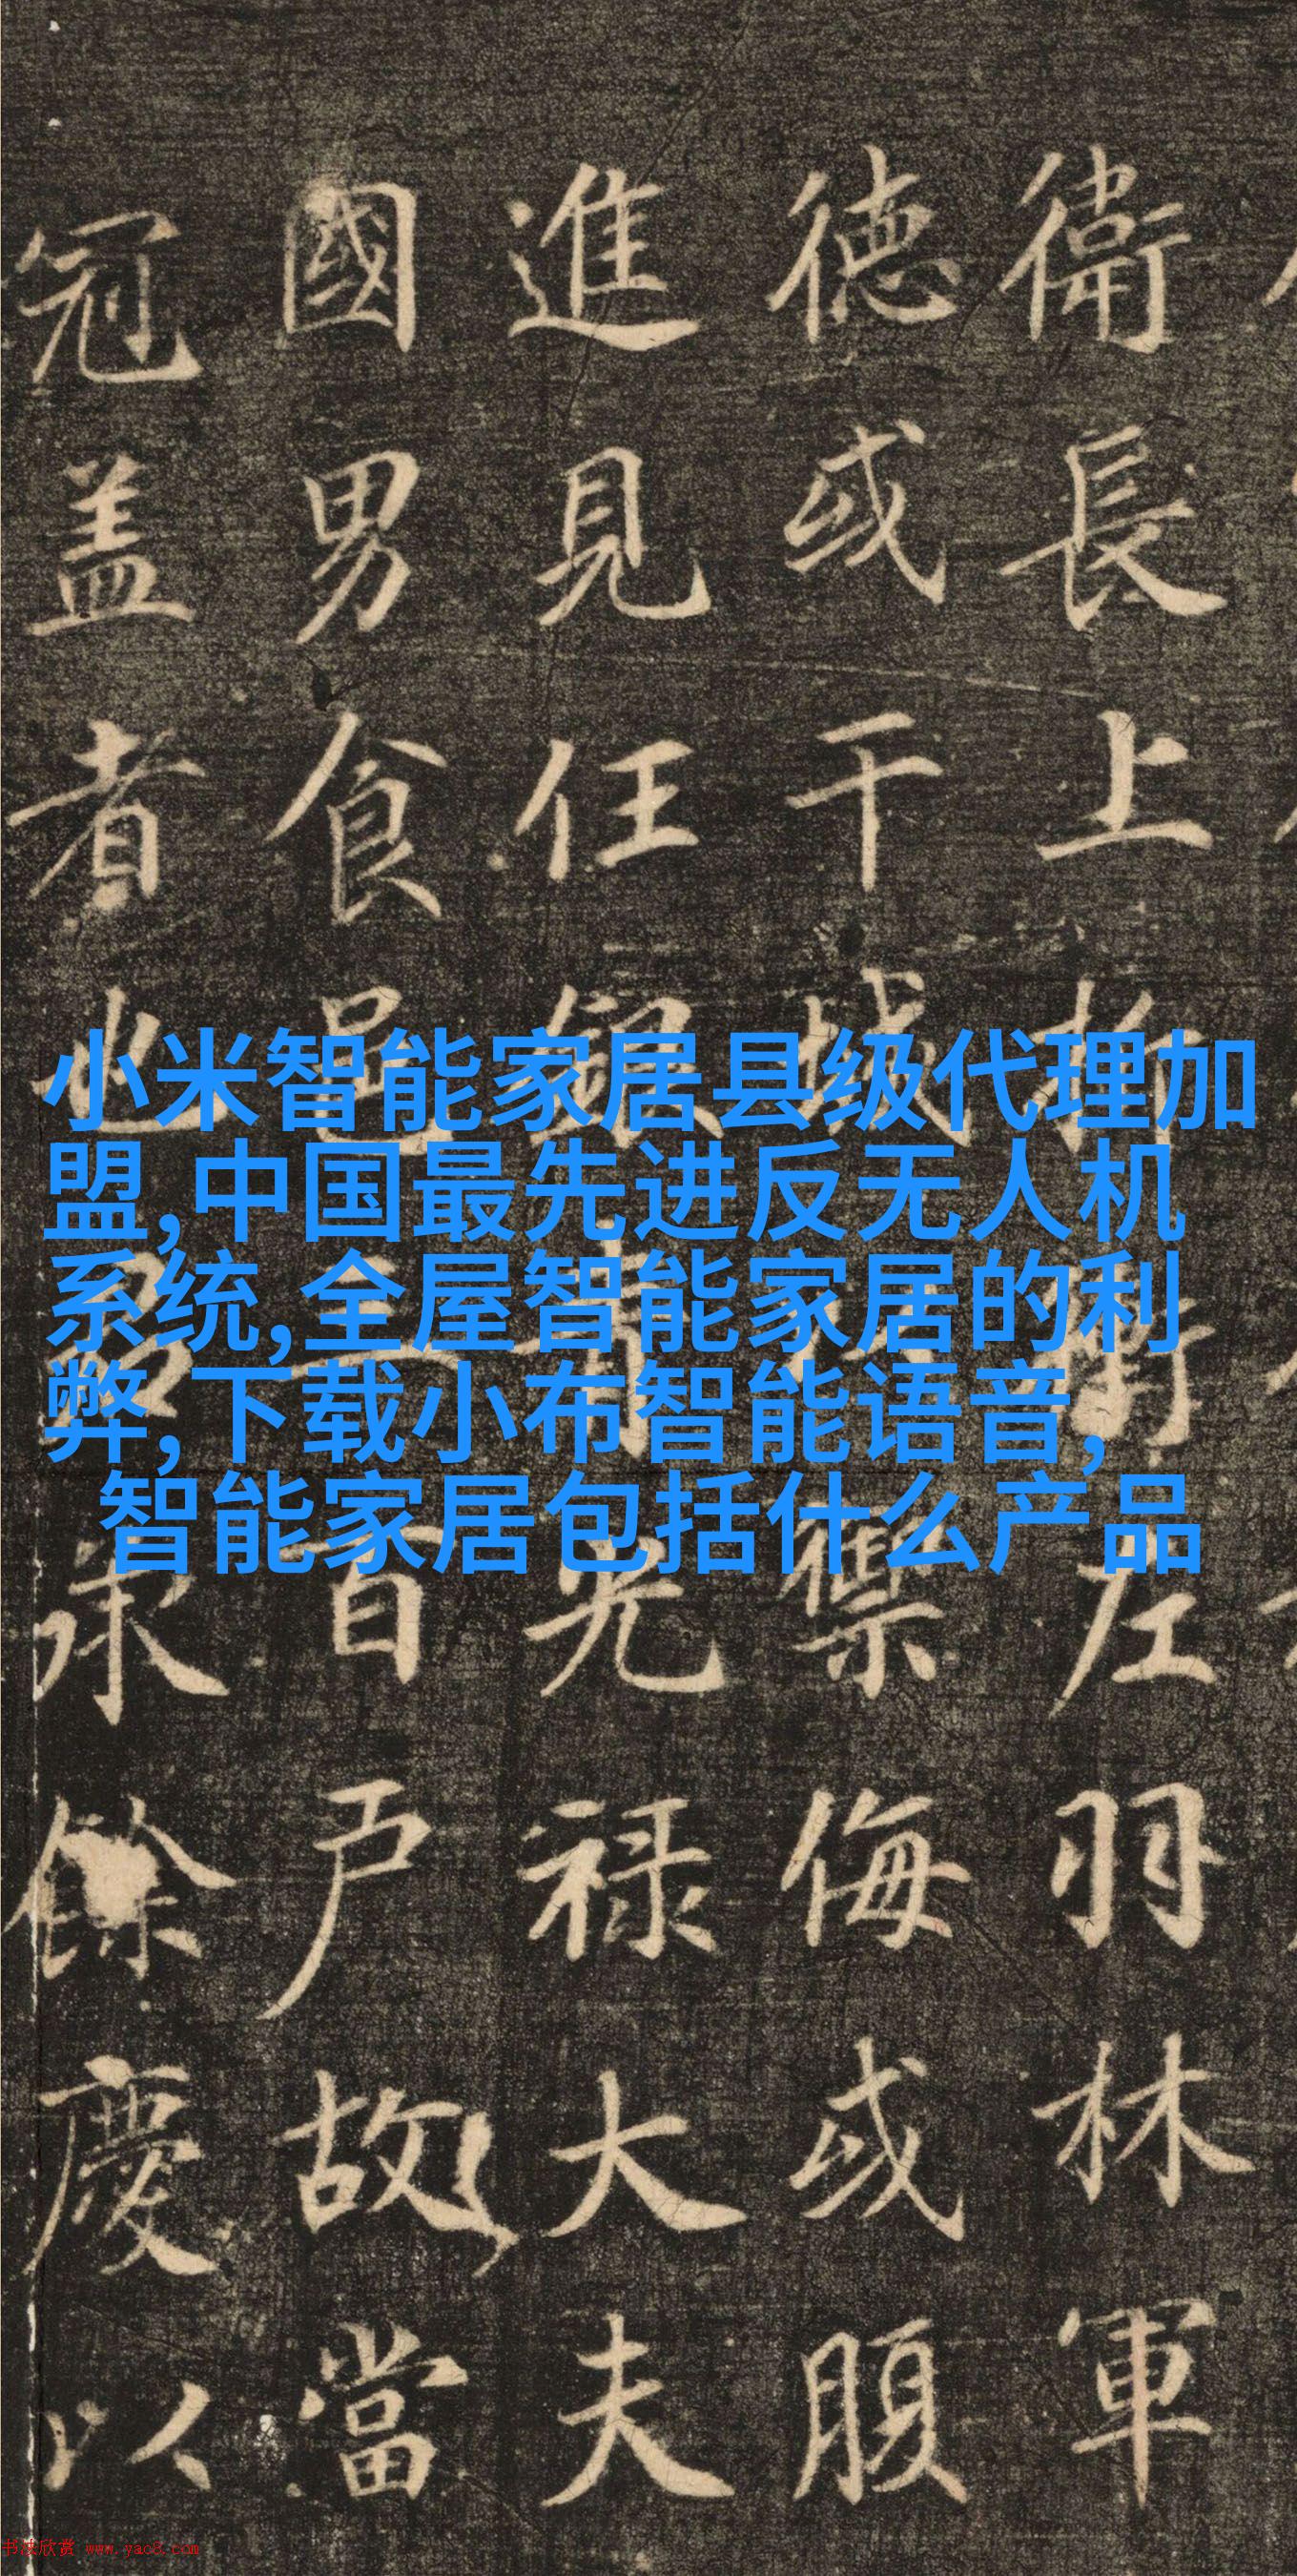 衛長上折衝左羽林軍
德或干城禦侮或腹
進見任銀青光禄大夫
國男食邑三百户故當
冠盖者也承餘慶以
小米智能家居县级代理加
盟,中国最先进反无人机
系统,全屋智能家居的利
弊,下载小布智能语音,
智能家居包括什么产品
书法欣赏 www.yac8.com